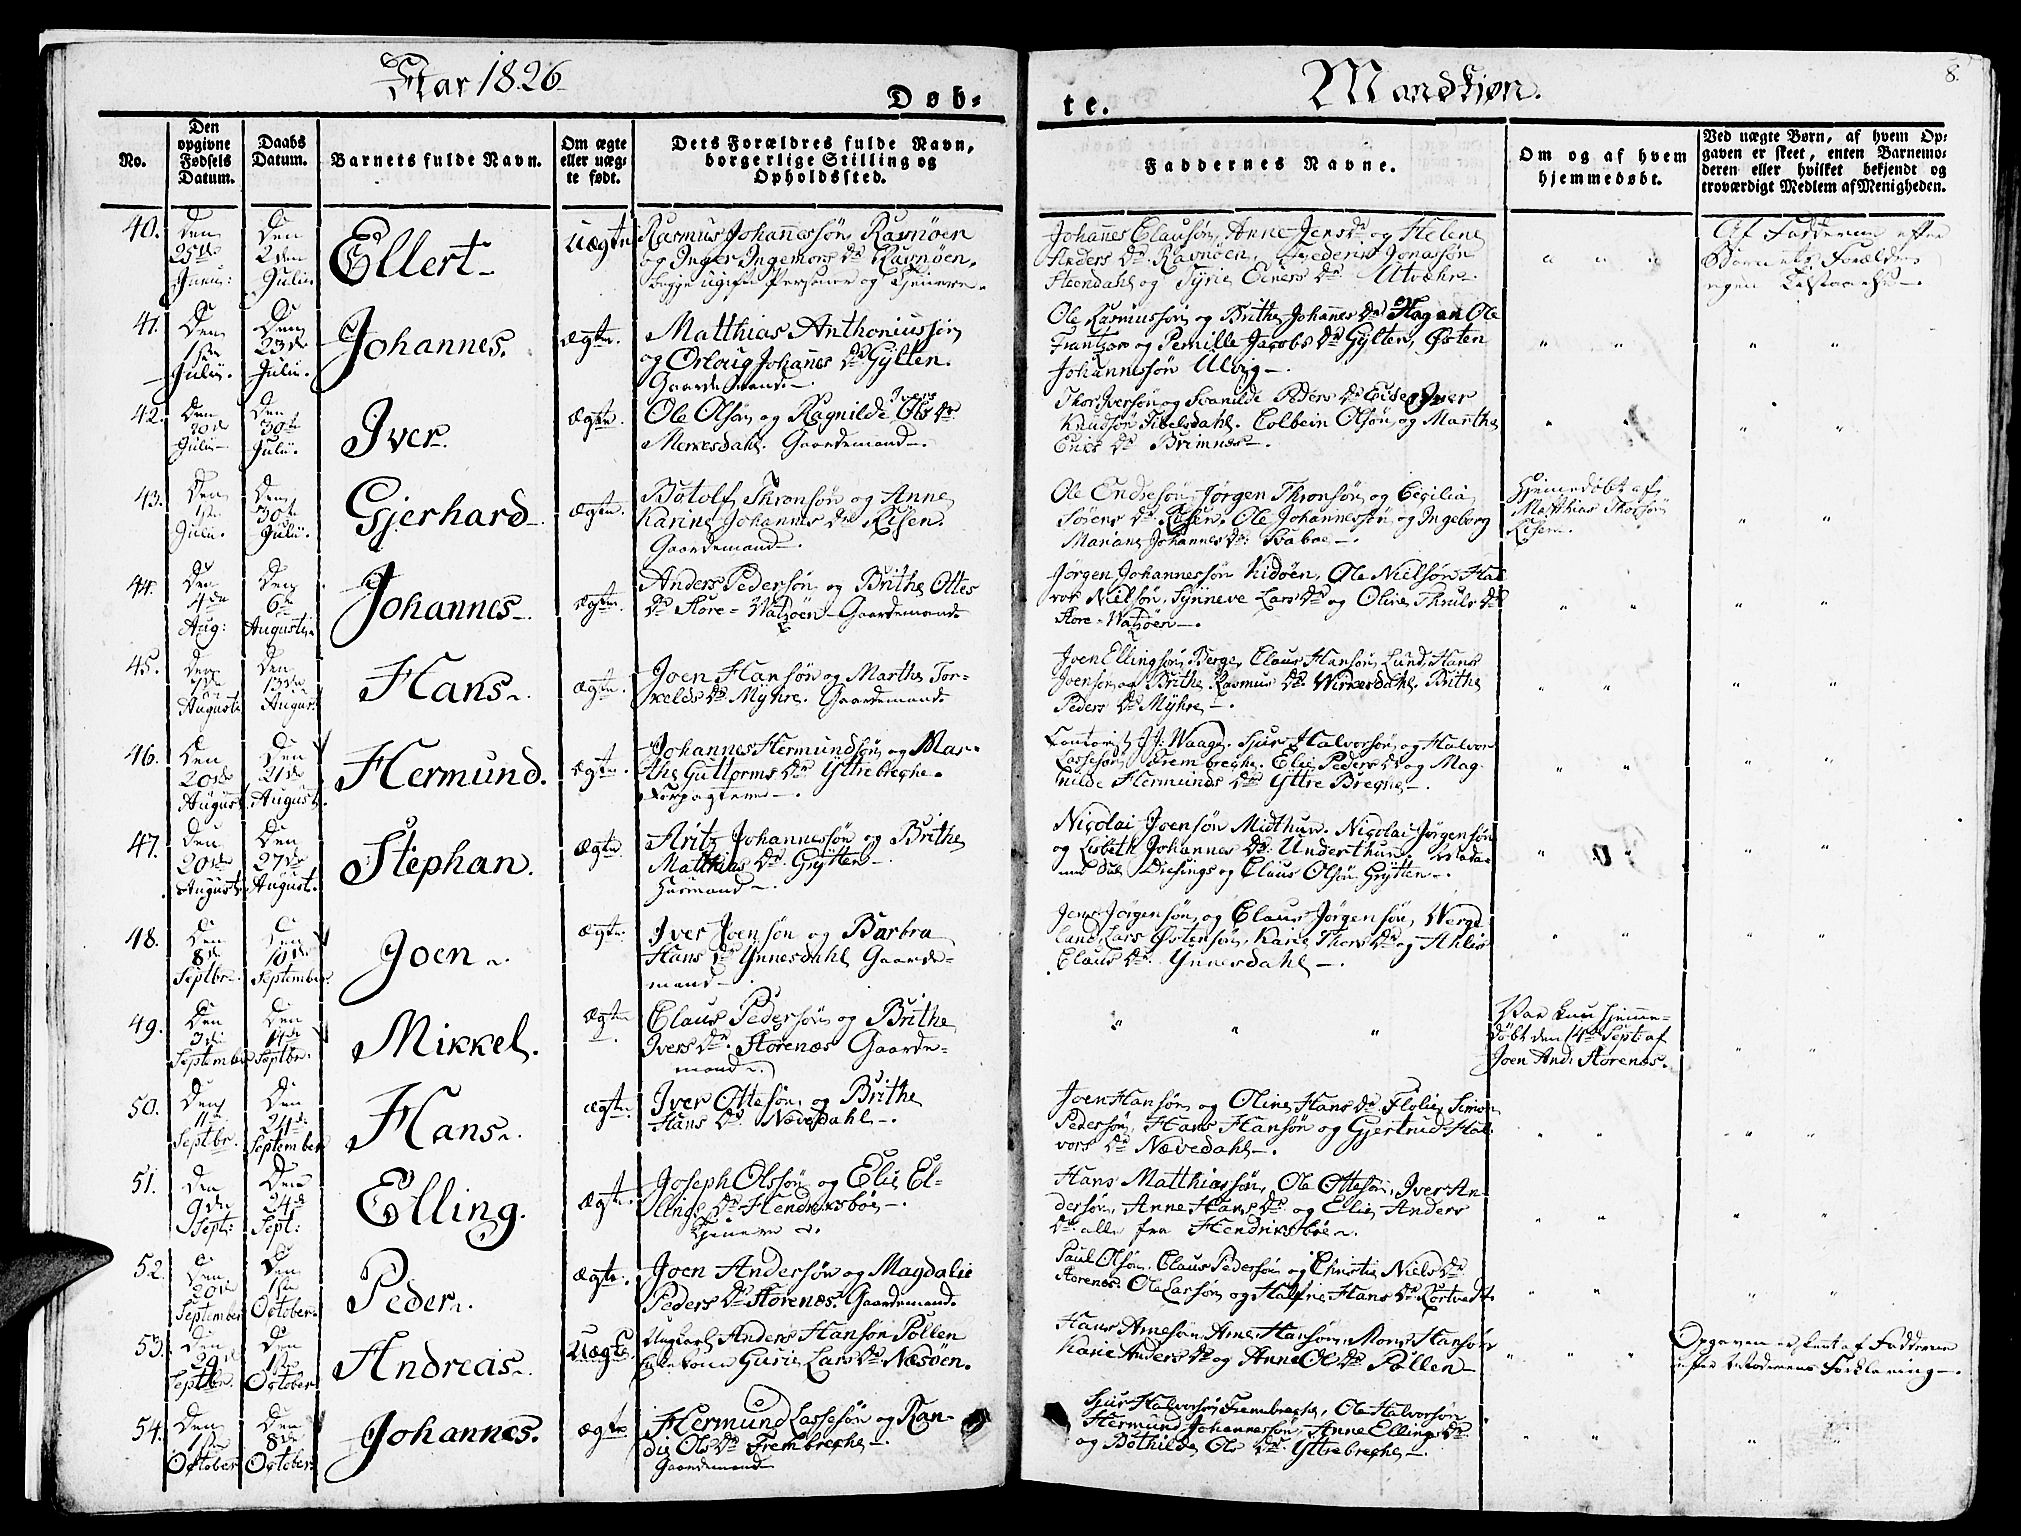 Aar 1826
Døb-
te.
Mandkjøn.
8.
No.
Den opgivne Fødsels Datum.
Daabs Datum.
Barnets fulde Navn.
Om ægte eller uægte født.
Dets Forældres fulde Navn, borgerlige Stilling og Opholdssted.
Faddernes Navne.
Om og af hvem hjemmedøbt.
Ved uægte Børn, af hvem Opgaven er skeet, enten Barnemoderen eller hvilket bekjendt og troværdigt Medlem af Menigheden.
40.
Den 25de Junii:
Den 2den Julii.
Ellert
Uægte
Rasmus Johannessøn Ravnøen
og Inger Ingemors Dr Ravnøen,
begge ugifte Personer og tjenere.
Johannes Clausøn, Anne Jens Dr og Helene
Anders Dr Ravnøen, Peder Jonassøn
Steendahl og Tyrie Einers Dr Utvær
" " "
Af Fadderne efter
Barnets Forældres
egen Tilstaaelse.
41.
Den 1ste Julii.
Den 23de Julii.
Johannes.
ægte.
Matthias Anthoniussøn
og Orloug Johanes Dr Gylten.
Gaardemand.
Ole Rasmussøn og Brithe Johannes Dr Hagen Ole
Frantzen og Pernille Jacobs Dr Gylten, Østen
Johannessøn Ulvig.
" "
" "
42.
Den 20de Julii
Den 30te Julii.
Iver.
ægte.
Ole Olsøn og Ragnilde Ivers Dr
Merkesdahl. Gaardemand.
Thor Iversøn og Svanilde Peders Dr Eide Iver
Knudsøn Tibelsdahl. Colbein Olsøn og Marthe
Erics Dr Brimnes.
" "
" "
43.
Den 1te Julii.
Den 30te Julii.
Gjerhard.
ægte.
Botolf Thronsøn og Anne
Karine Johannes Dr Risen.
Gaardemand.
Ole Endresøn, Jørgen Thronsøn og Cecilia
Sørens Dr Risen. Ole Johannessøn og Ingeborg
Mariane Johannes Dr: Svaboe.
Hjemedøbt af
Matthias
Risen.
" "
44.
Den 4de Aug:
Den 6te Augusti
Johannes.
ægte.
Anders Pedersøn og Brithe Ottes
Dr Store-Watzøen Gaardemand
Jørgen Johannessøn Kidøen, Ole Nielsøn Hal
vor Nielsøn, Synneve Lars Dr og Oline Dr
Store-Watzøen.
" "
" "
45.
Den 7de August
Den 13de August
Hans.
ægte.
Joen Hansøn og Marthe Tor-
kelds Dr Myhre. Gaardemand.
Joen Ellingsøn Berge, Claus Hansøn Lund, Hans
Joensøn og Brithe Rasmus Dr Wirkesdahl. Brithe
Peders Dr Myhre.
" "
" "
46.
Den 20de August
Den 21de August.
Hermund.
ægte.
Johannes Hermundsøn og Mar-
the Guttorms Dr Yttrebreghe.
Forpagtere.
J: J: Waage. Sjur Halvorsøn og Halvor
Lassesøn Frembreghe. Elie Peders Dr og Mag-
nilde Hermunds Dr Yttre Breghe.
" "
" "
47.
Den 20de August
Den 27de August.
Stephan.
ægte.
Fritz Johannessøn og Brithe
Matthias Dr Grytten.
Huusmand.
Nicolai Joensøn Midthun. Nicolai Jørgensøn
og Lisbeth Johannes Dr. Underthun Mada-
me Diesings og Claus Olsøn Grytten.
" "
" "
48.
Den 8de Septbr.
Den 10de September.
Joen.
ægte.
Iver Joensøn og Barbra
Hans Dr Ynnesdahl Gaarde-
mand.
Jens Jørgensøn og Claus Jørgensøn, Werge
land, Lars Østensøn, Karie Thors Dr og Ahlis
Claus Dr Ynnesdahl.
" "
" "
49.
Den 3de September
Den 14de Septbr.
Mikkel.
ægte.
Claus Pedersøn og Brithe
Ivers Dr Storenæs Gaarde-
mand.
" " "
Var kun hjemme-
døbt den 14de Sept: af
Joen And: Storenæs.
" "
50.
Den 11te Septbr.
Den 24de September
Hans.
ægte.
Iver Ottesøn og Brithe
Hans Dr Nævedahl.
Joen Hansøn og Oline Hans Dr Flølie, Simon
Pedersøn, Hans Hansøn og Gjertrud Hal-
vors Dr Nævedahl.
" "
" "
51.
Den 9de Sept:
Den 24de Sept:
Elling.
ægte.
Joseph Olssøn og Elie El-
lings Dr Hendriksbøe.
tjenere.
Hans Matthiassøn, Ole Ottesøn, Iver An-
dersøn, Anne Hans Dr og Elie Anders
Dr alle fra Hendriksbøe.
" "
" "
52.
Den 20de September
Den 1ste October
Peder.
ægte.
Joen Andersøn og Magdalie
Peders Dr Storenæs. Gaardemand.
Paul Olsøn, Claus Pedersøn og Christie Niels Dr
Storenæs. Ole Larsøn og Hans Dr Kortvedt.
" "
" "
53.
Den 24de Septbr.
Den 1ste October
Andreas.
Uægte.
Ungkarl Anders Hansøn Pollen
Gurie Lars Dr Næsøen.
Hans Arnesøn, Arne Hansøn, Mons Hansøn
Karie Anders Dr og Anne Ol Dr Pollen
" " "
Opgaven er skeet af Fadderne
efter Moderens Forklaring.
54.
Den 1ste October
Den 8de October
Johannes.
ægte.
Hermund Lassesøn og Ran-
di Ols Dr Frembreghe.
Gaardemand
Sjur Halvorsøn Frembreghe, Ole Halvorsøn
Hermund Johannessøn, Anne Ellings Dr
og Bothilde Ols Dr. Yttrebreghe.
" "
" "